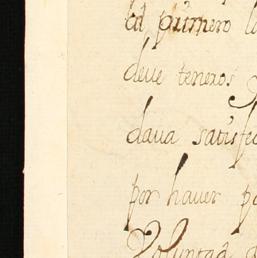 al primero l
deue teneros
daua satisfe
por hauer p
Voluntad